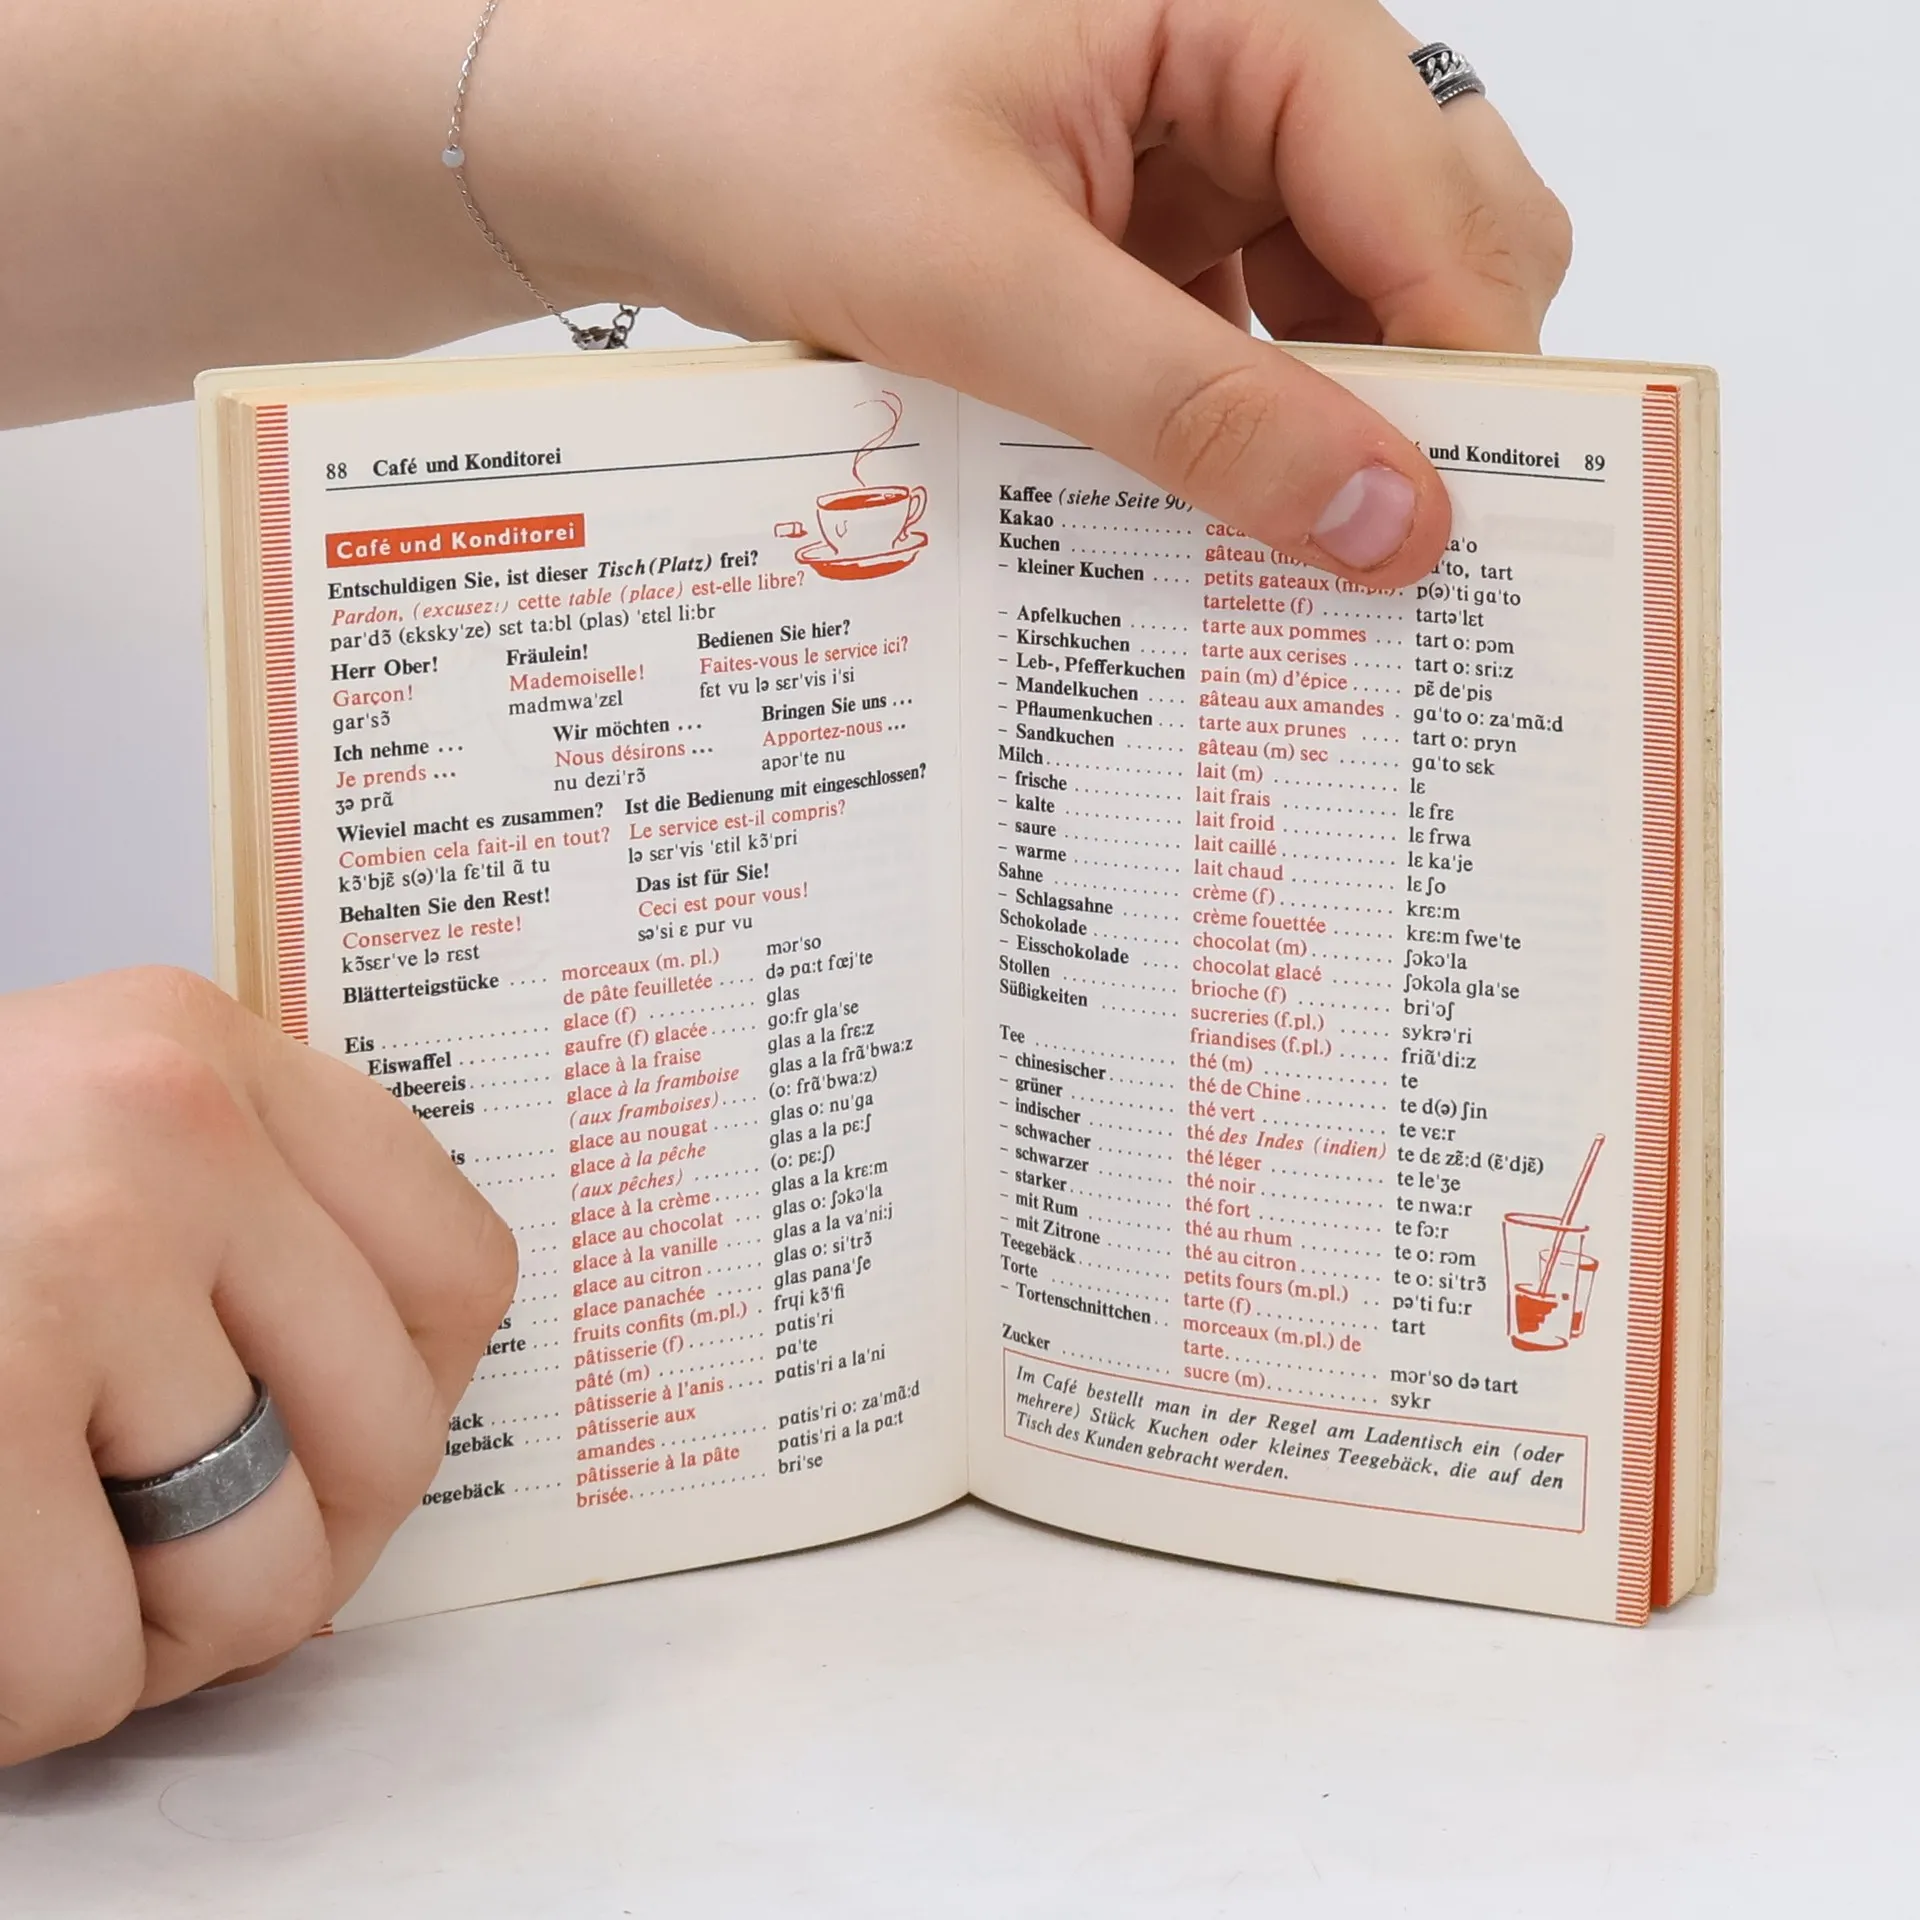 88 Café und Konditorei
Café und Konditorei
Entschuldigen Sie, ist dieser Tisch (Platz) frei?
Pardon, (excusez!) cette table (place) est-elle libre?
par'dɔ̃ (ɛksky'ze) sɛt ta:bl (plas) 'ɛtɛl li:br
Herr Ober! Fräulein! Bedienen Sie hier?
Garçon! Mademoiselle! Faites-vous le service ici?
gar'sɔ̃ madmwa'zɛl fɛt vu lə sɛr'vis i'si
Ich nehme ... Wir möchten ... Bringen Sie uns ...
Je prends ... Nous désirons ... Apportez-nous ...
ʒə prɑ̃ nu dezi'rɔ̃ apɔr'te nu
Wieviel macht es zusammen? Ist die Bedienung mit eingeschlossen?
Combien cela fait-il en tout? Le service est-il compris?
kɔ̃'bjɛ̃ s(ə)'la fɛ'til ɑ̃ tu lə sɛr'vis 'ɛtil kɔ̃'pri
Behalten Sie den Rest! Das ist für Sie!
Conservez le reste! Ceci est pour vous!
kɔ̃sɛr've lə rɛst sə'si ɛ pur vu
Blätterteigstücke .... morceaux (m. pl.) mɔr'so
de pâte feuilletée .... də pɑ:t fœj'te
Eis .................. glace (f) .......... glas
Eiswaffel ......... gaufre (f) glacée ..... go:fr gla'se
glace à la fraise glas a la frɛ:z
glace à la framboise glas a la frɑ̃'bwa:z
(aux framboises) .... (o: frɑ̃'bwa:z)
glace au nougat ..... glas o: nu'ga
glace à la pêche glas a la pɛ:ʃ
(aux pêches) ....... (o: pɛ:ʃ)
glace à la crème ..... glas a la krɛ:m
glace au chocolat ... glas o: ʃɔkɔ'la
glace à la vanille .... glas a la va'ni:j
glace au citron ...... glas o: si'trɔ̃
glace panachée ..... glas pana'ʃe
fruits confits (m.pl.) . frɥi kɔ̃'fi
pâtisserie (f) ....... pɑtis'ri
pâté (m) ........... pɑ'te
pâtisserie à l'anis .... pɑtis'ri a la'ni
pâtisserie aux
amandes ........... pɑtis'ri o: za'mɑ̃:d
pâtisserie à la pâte pɑtis'ri a la pɑ:t
brisée .............. bri'se
und Konditorei 89
Kaffee (siehe Seite 90)
Kakao ............
Kuchen ........... gâteau tart
– kleiner Kuchen .... petits gateaux p(ə)'ti gɑ'to
tartelette (f) ........ tartə'lɛt
– Apfelkuchen ...... tarte aux pommes ... tart o: pɔm
– Kirschkuchen ..... tarte aux cerises ..... tart o: sri:z
– Leb-, Pfefferkuchen pain (m) d'épice ..... pɛ̃ de'pis
– Mandelkuchen .... gâteau aux amandes . gɑ'to o: za'mɑ̃:d
– Pflaumenkuchen ... tarte aux prunes .... tart o: pryn
– Sandkuchen ...... gâteau (m) sec ...... gɑ'to sɛk
Milch .............. lait (m) ............ lɛ
– frische ........... lait frais ........... lɛ frɛ
– kalte ............ lait froid ........... lɛ frwa
– saure ............ lait caillé ........... lɛ ka'je
– warme ........... lait chaud .......... lɛ ʃo
Sahne ............. crème (f) ........... krɛ:m
– Schlagsahne ...... crème fouettée ...... krɛ:m fwe'te
Schokolade ......... chocolat (m) ........ ʃɔkɔ'la
– Eisschokolade .... chocolat glacé ...... ʃɔkɔla gla'se
Stollen ............ brioche (f) ......... bri'ɔʃ
Süßigkeiten ........ sucreries (f.pl.) ..... sykrə'ri
friandises (f.pl.) ..... friɑ̃'di:z
Tee ............... thé (m) ............ te
– chinesischer ....... thé de Chine ........ te d(ə) ʃin
– grüner ........... thé vert ............ te vɛ:r
– indischer ......... thé des Indes (indien) te dɛ zɛ̃:d (ɛ̃'djɛ̃)
– schwacher ........ thé léger ........... te le'ʒe
– schwarzer ........ thé noir ............ te nwa:r
– starker ........... thé fort ............ te fɔ:r
– mit Rum ......... thé au rhum ........ te o: rɔm
– mit Zitrone ....... thé au citron ........ te o: si'trɔ̃
Teegebäck .......... petits fours (m.pl.) .. pə'ti fu:r
Torte ............. tarte (f) ........... tart
– Tortenschnittchen .. morceaux (m.pl.) de
tarte .............. mɔr'so də tart
Zucker ............ sucre (m) .......... sykr
Im Café bestellt man in der Regel am Ladentisch ein (oder
mehrere) Stück Kuchen oder kleines Teegebäck, die auf den
Tisch des Kunden gebracht werden.